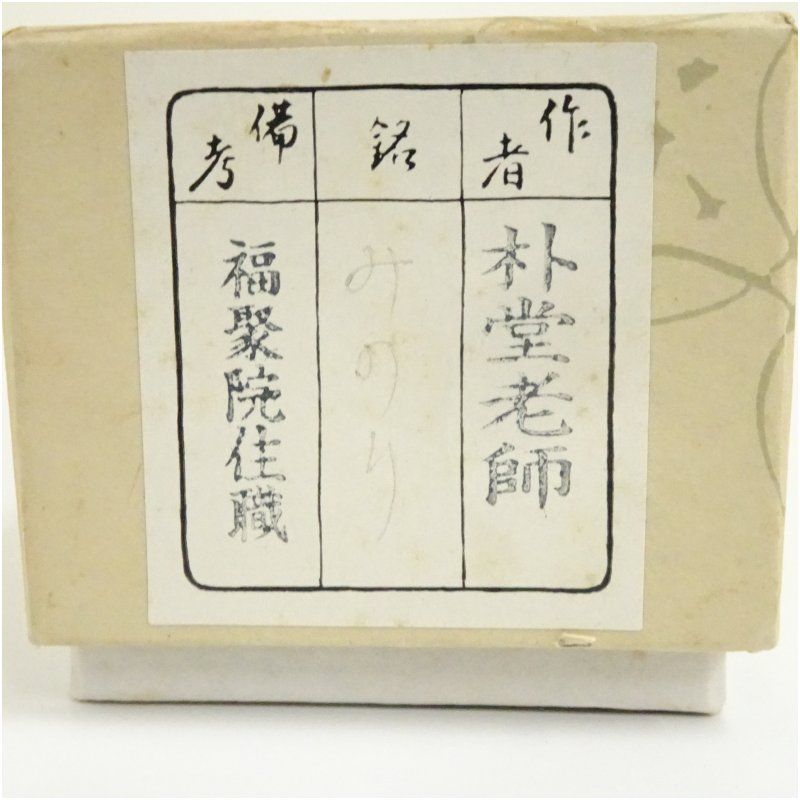 作者
朴堂老師
銘
みのり
備考
福聚院住職